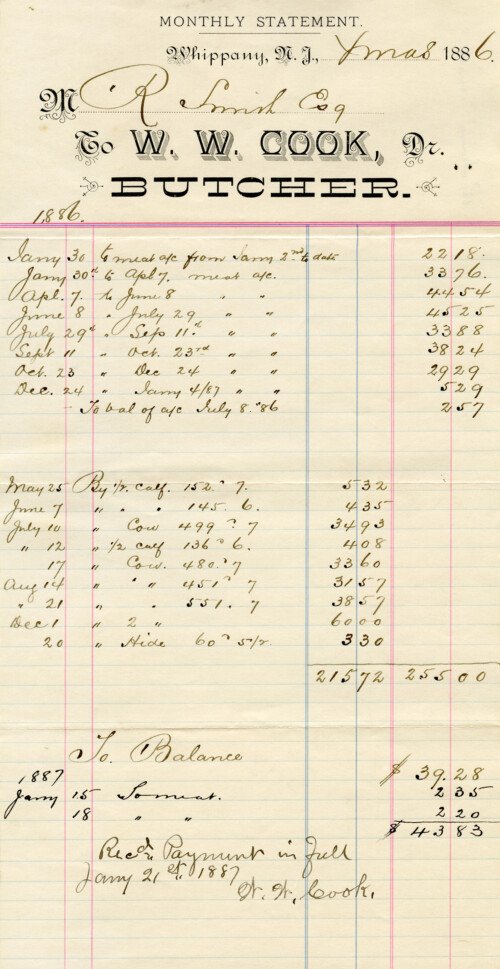 MONTHLY STATEMENT.
Whippany, N. J., Xmas 1886.
M R Smith Esq
To W. W. COOK, Dr.
BUTCHER.
1886.
Jany 30 to meat a/c from Jany 2nd to date 22 18.
Jany 30th to Apl 7. meat a/c. 33 76.
Apl. 7. to June 8 " " 44 54
June 8 " July 29 " " 45 25
July 29th " Sep 11th " " 33 88
Sept 11 " Oct. 23rd " " 38 24
Oct. 23 " Dec 24 " " 29 29
Dec. 24 " Jany 4/87 " " 5 29
To bal of a/c July 8th 86 2 57
May 25 By 1/2 calf. 152 7. 5 32
June 7 " " " 145. 6. 4 35
July 10 " Cow 499 7 34 93
" 12 " 1/2 calf 136 6. 4 08
17 " Cow. 480. 7 33 60
Aug 14 " " 451 7 31 57
" 21 " " 551. 7 38 57
Dec 1 " 2 " 60 00
20 " Hide 60 3 30
215 72 255 00
To Balance $ 39.28
1887
Jany 15 To meat. 2 35
18 " " 2 20
$ 43 83
Recd Payment in full
Jany 21st, 1887
W. W. Cook.